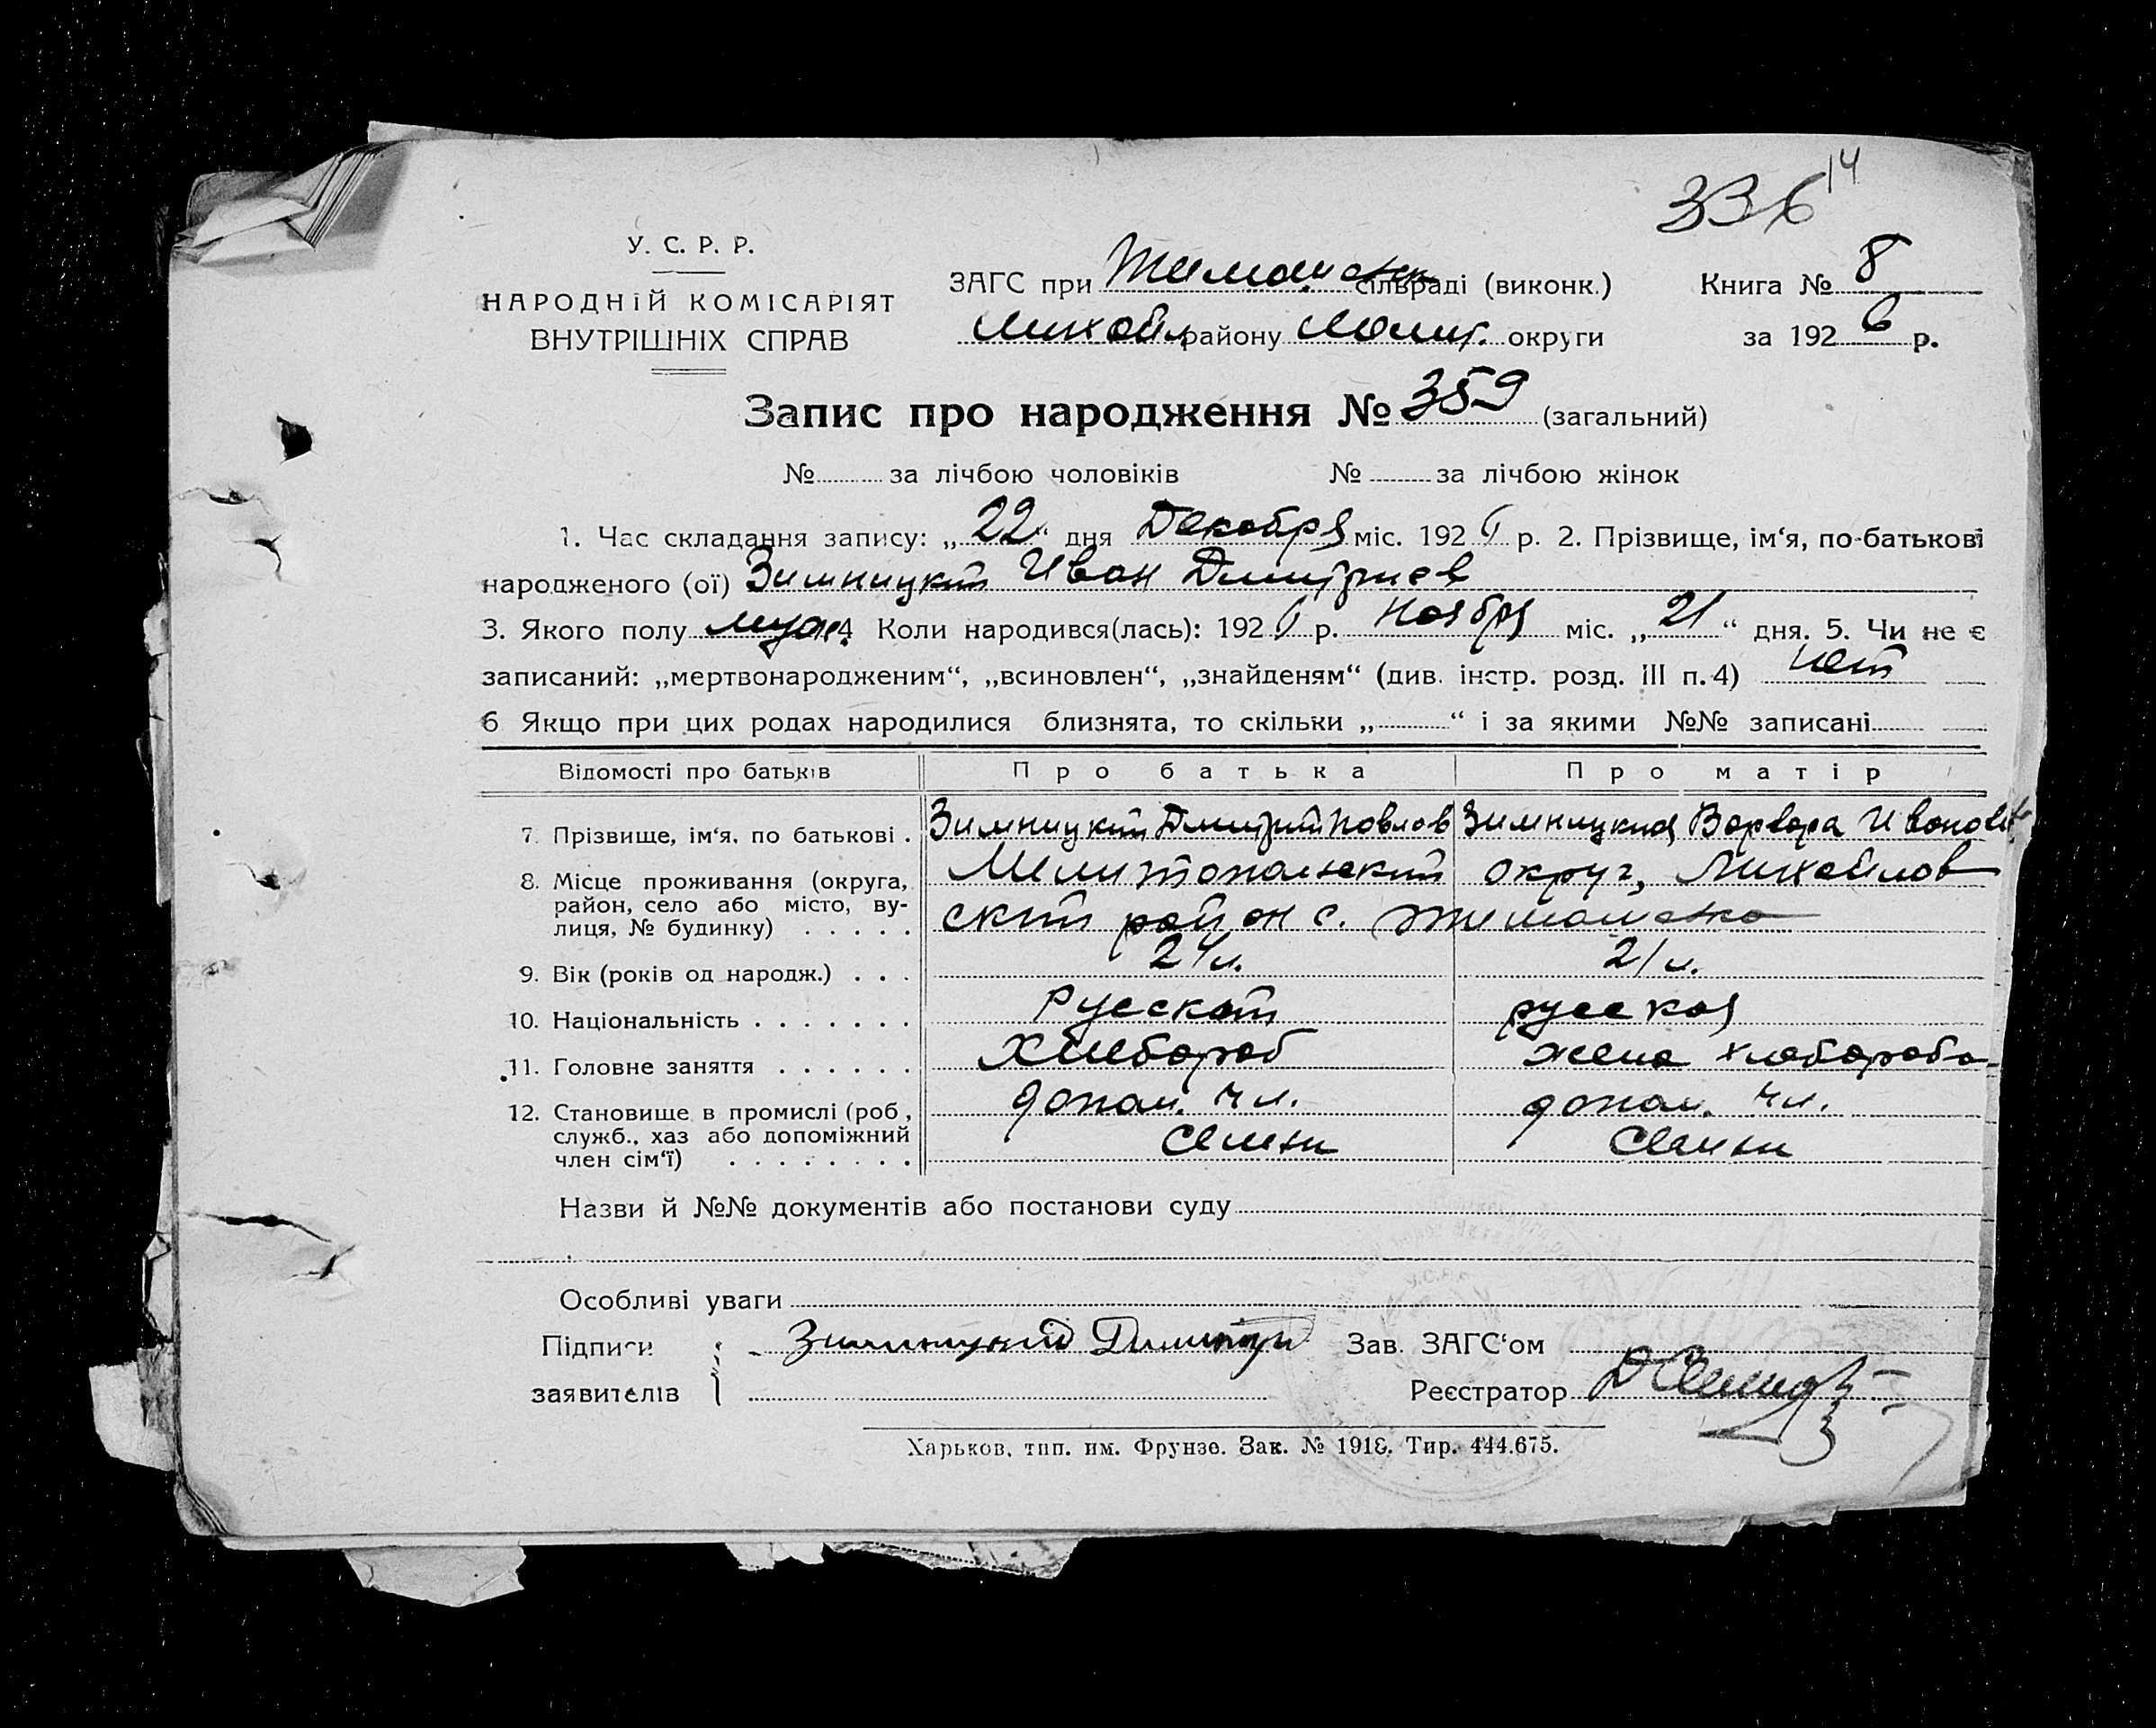 336 14
У. С. Р. Р.
НАРОДНІЙ КОМІСАРІЯТ
ВНУТРІШНІХ СПРАВ
ЗАГС при Тимашевск сільраді (виконк.)
Михайл району Мелит. округи
Книга № 8
за 1926 р.
Запис про народження № 359 (загальний)
№ за лічбою чоловіків № за лічбою жінок
1. Час складання запису: „22“ дня Декабря міс. 1926 р. 2. Прізвище, ім‘я, по-батькові
народженого (ої) Зимницкий Иван Дмитриев
3. Якого полу муж. 4 Коли народився(лась): 1926 р. Ноября міс. „21“ дня. 5. Чи не є
записаний: „мертвонародженим“, „всиновлен“, „знайденям“ (див. інстр. розд. III п. 4) нет
6 Якщо при цих родах народилися близнята, то скільки „ “ і за якими №№ записані
Відомості про батьків Про батька Про матір
7. Прізвище, ім‘я, по батькові . Зимницкий Дмитрий Павлов Зимницкия Варвара Иванов
8. Місце проживання (округа, район, село або місто, вулиця, № будинку) . . . . . Мелитопольский округ, Михайлов
ский район с. Тимашевка
9. Вік (років од народж.) . . . 24 л. 21 л.
10. Національність . . . . . . . Русский русская
11. Головне заняття . . . . . . Хлебороб жена хлебороба
12. Становище в промислі (роб., служб., хаз або допоміжний член сім‘ї) . . . . . . . . допом. чл. семьи допом. чл. семьи
Назви й №№ документів або постанови суду
Особливі уваги
Підписи заявителів Зимницкий Дмитри
Зав. ЗАГС‘ом
Реєстратор
Харьков, тип. им. Фрунзе. Зак. № 1918. Тир. 444.675.